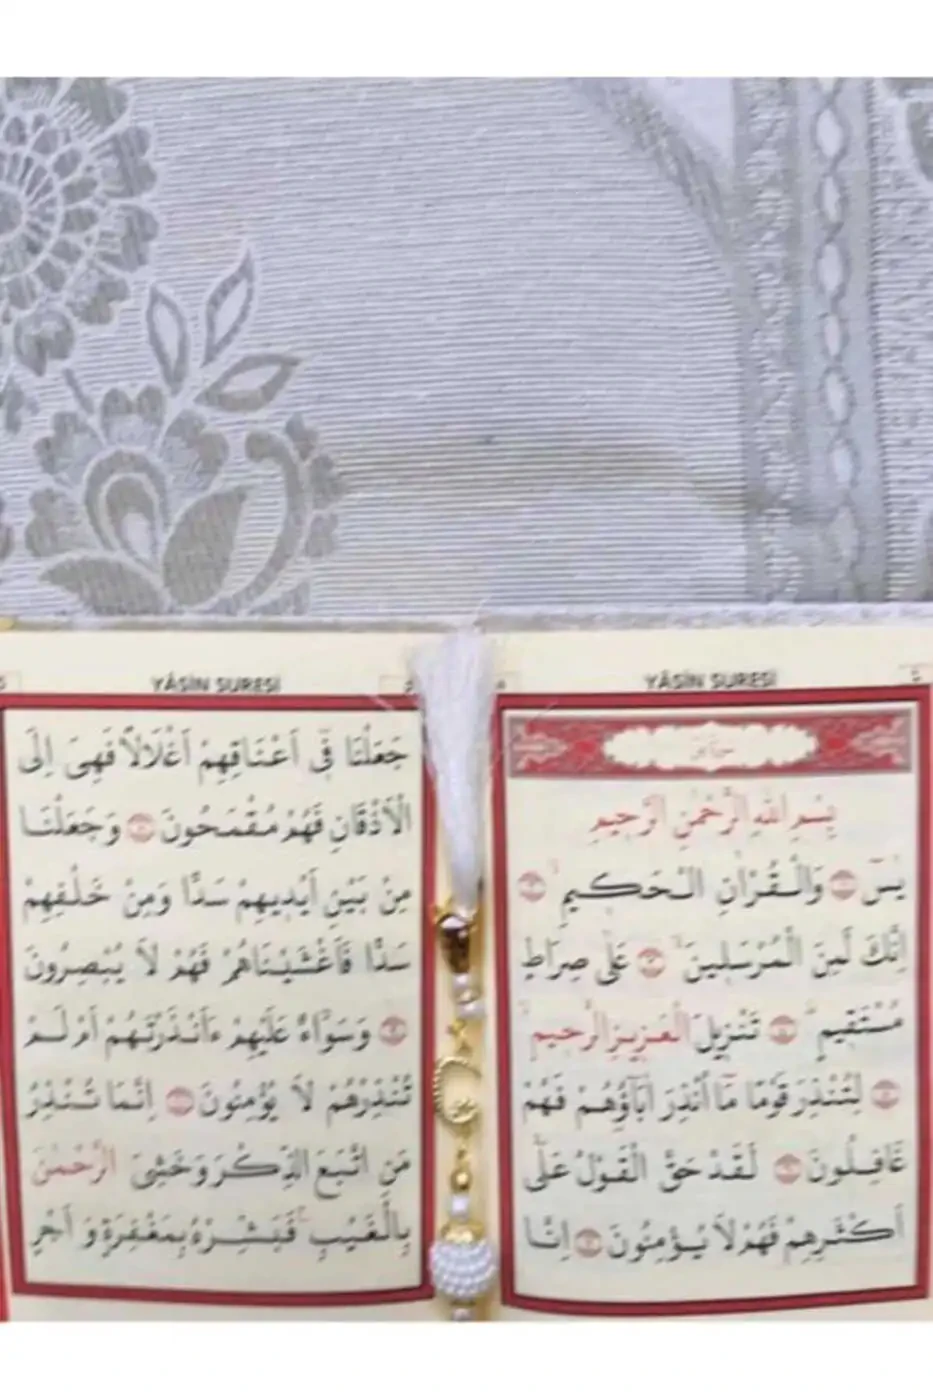 YÂSİN SURESİ
بِسْمِ اللهِ الرَّحْمٰنِ الرَّحِيمِ
يٰسٓ وَالْقُرْاٰنِ الْحَكِيمِ
اِنَّكَ لَمِنَ الْمُرْسَلِينَ عَلٰى صِرَاطٍ
مُسْتَقِيمٍ تَنْزِيلَ الْعَزِيزِ الرَّحِيمِ
لِتُنْذِرَ قَوْمًا مَٓا اُنْذِرَ اٰبَٓاؤُهُمْ فَهُمْ
غَافِلُونَ لَقَدْ حَقَّ الْقَوْلُ عَلٰٓى
اَكْثَرِهِمْ فَهُمْ لَا يُؤْمِنُونَ اِنَّا
YÂSİN SURESİ
جَعَلْنَا فٓى اَعْنَاقِهِمْ اَغْلَالًا فَهِىَ اِلَى
الْاَذْقَانِ فَهُمْ مُقْمَحُونَ وَجَعَلْنَا
مِنْ بَيْنِ اَيْدِيهِمْ سَدًّا وَمِنْ خَلْفِهِمْ
سَدًّا فَاَغْشَيْنَاهُمْ فَهُمْ لَا يُبْصِرُونَ
وَسَوَٓاءٌ عَلَيْهِمْ ءَاَنْذَرْتَهُمْ اَمْ لَمْ
تُنْذِرْهُمْ لَا يُؤْمِنُونَ اِنَّمَا تُنْذِرُ
مَنِ اتَّبَعَ الذِّكْرَ وَخَشِىَ الرَّحْمٰنَ
بِالْغَيْبِ فَبَشِّرْهُ بِمَغْفِرَةٍ وَاَجْرٍ